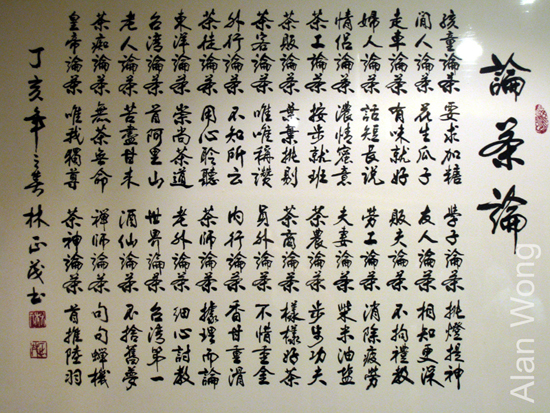 論茶論
孩童論茶 要求加糖 學子論茶 挑燈提神
閒人論茶 花生瓜子 友人論茶 相知更深
走車論茶 有味就好 販夫論茶 不拘禮數
婦人論茶 話短長說 勞工論茶 消除疲勞
情侶論茶 濃情蜜意 夫妻論茶 柴米油鹽
茶工論茶 按步就班 茶農論茶 步步功夫
茶販論茶 葉葉挑剔 茶商論茶 樣樣好茶
茶客論茶 唯唯稱讚 員外論茶 不惜重金
外行論茶 不知所云 內行論茶 香甘重滑
茶徒論茶 用心聆聽 茶師論茶 據理而論
東洋論茶 崇尚茶道 老外論茶 細心討教
台灣論茶 首阿里山 世界論茶 台灣第一
老人論茶 苦盡甘來 酒仙論茶 不捨舊夢
茶痴論茶 無茶 命 禪師論茶 句句禪機
皇帝論茶 唯我獨尊 茶神論茶 首推陸羽
丁亥年之 林正茂書
Alan Wong